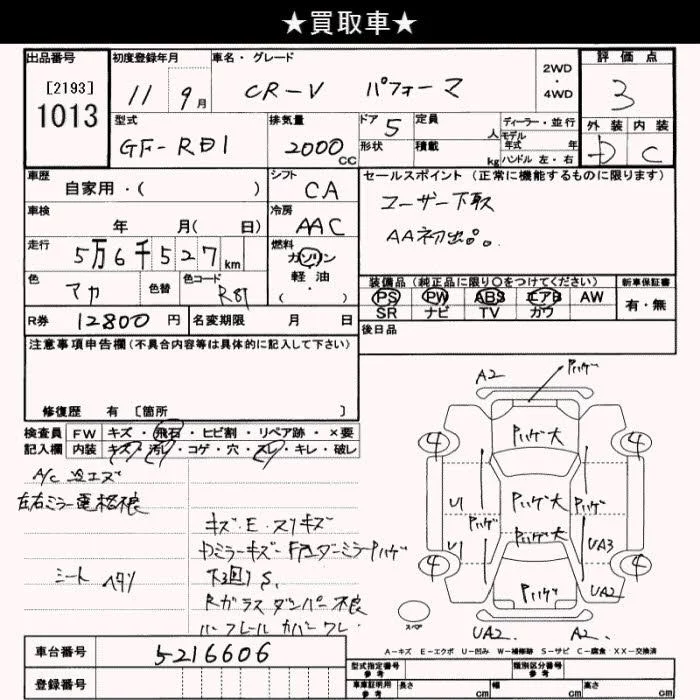 ★買取車★
出品番号 初度登録年月 車名・グレード 2WD ・ 4WD 評価点
[2193] 1013
11 9月 CR-V パフォーマ 3
型式 排気量 ドア 定員 ディーラー・並行 外装 内装
GF-RD1 2000 CC 5 人 モデル年式 年 D C
形状 積載 kg ハンドル 左・右
車歴 シフト セールスポイント (正常に機能するものに限ります)
自家用・( ) CA ユーザー下取
車検 冷房
年 月( 日) AAC AA初出品。
走行 燃料
5万6千527km ガソリン 軽油 ・
色 色替 色コード 装備品 (純正品に限り○をつけてください) 新車保証書
アカ R81 PS PW ABS エアB AW 有・無
SR ナビ TV カワ
R券 12800円 名変期限 月 日 後日品
注意事項申告欄 (不具合内容等は具体的に記入して下さい)
修復歴 有 [箇所 ]
検査員 FW キズ・飛石・ヒビ割・リペア跡・×要
記入欄 内装 キズ・汚レ・コゲ・穴・スレ・キレ・破レ
A/C
左右ミラー電格不良
キズ・E・スリキズ
ミラーキズ
シート ヘタリ
下廻りS,
Rガラスダンパー不良
カバーワレ
A2 Pハゲ
4 Pハゲ大 4
U1 Pハゲ Pハゲ大 Pハゲ
U1 Pハゲ大 UA3
4 Pハゲ 4 UA2
スペア UA2. A2.
A-キズ E-エクボ U-凹み W-補修跡 S-サビ C-腐食 ・XX-交換済
車台番号 5216606
型式指定番号 参考 類別区分番号 参考
登録番号
車庫証明用 参考 長さ cm 幅 cm 高さ cm